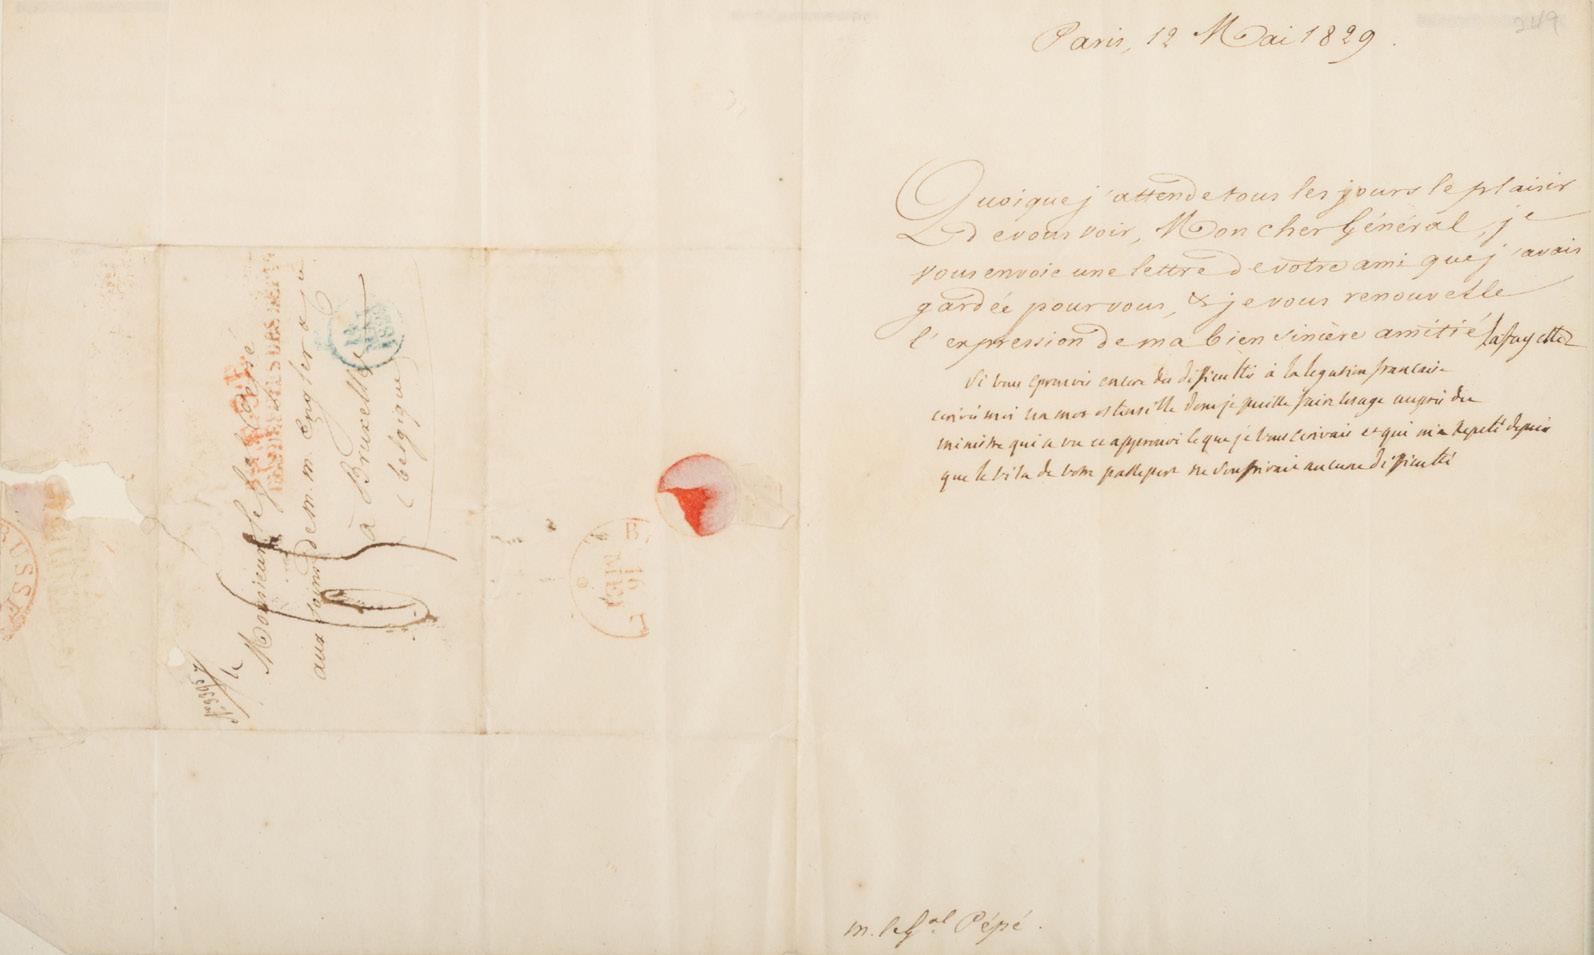 249
Paris, 12 Mai 1829.
Quoique j'attende tous les jours le plaisir
de vous voir, Mon cher Général, je
vous envoie une lettre de votre ami que j'avais
gardée pour vous, & je vous renouvelle
l'expression de ma bien sincère amitié Lafayette
Si vous eprouvés encore des difficultés à la legation française
ecrivés moi un mot ostensible dont je puisse faire usage aupres du
ministre qui a vu et approuvé ce que je vous ecrivais et qui m'a repeté depuis
que le visa de votre passeport ne souffrirait aucune difficulté
m. le Gal Pépé.
Monsieur le Gal Pépé
aux soins de m.m. Engler & Cie
à Bruxelles
(belgique)
16
MEI